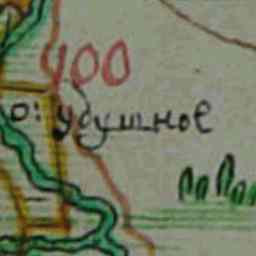 400
о: убушное